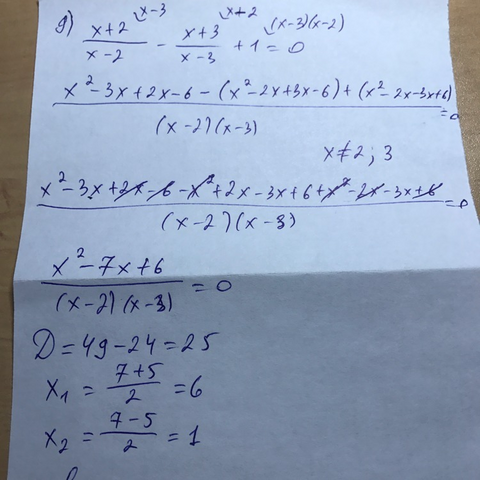 g) \frac{x+2}{x-2}^{x-3} - \frac{x+3}{x-3}^{x+2} + 1^{(x-3)(x-2)} = 0
\frac{x^2-3x+2x-6-(x^2-2x+3x-6)+(x^2-2x-3x+6)}{(x-2)(x-3)} = 0
x≠2; 3
\frac{x^2-3x+2x-6-x^2+2x-3x+6+x^2-2x-3x+6}{(x-2)(x-3)} = 0
\frac{x^2-7x+6}{(x-2)(x-3)} = 0
D=49-24=25
x_1 = \frac{7+5}{2} = 6
x_2 = \frac{7-5}{2} = 1